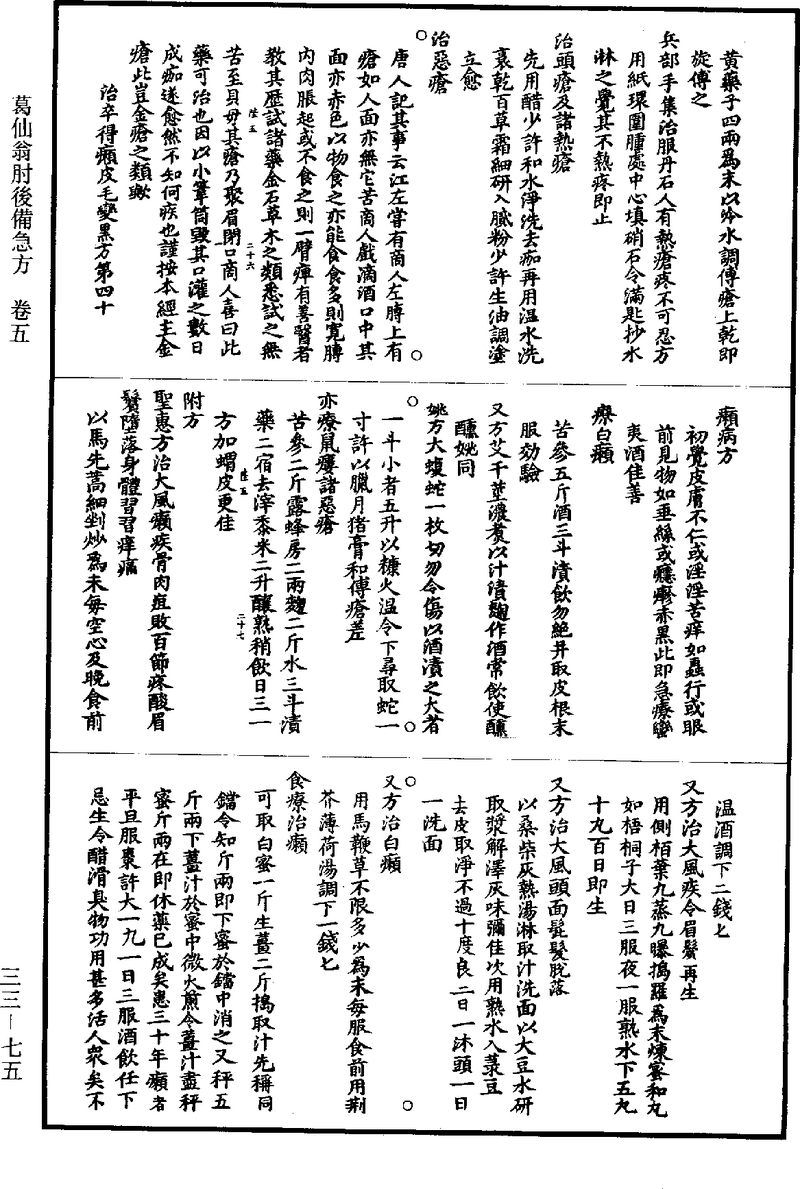 葛仙翁肘後備急方　卷五
黃藥子四兩爲末以冷水調傅瘡上乾即
旋傅之
兵部手集治服丹石人有熱瘡疼不可忍方
用紙環圍腫處中心填硝石令滿匙抄水
淋之覺其不熱疼即止
治頭瘡及諸熱瘡
先用醋少許和水淨洗去痂再用温水洗
裛乾百草霜細研入膩粉少許生油調塗
立愈
治惡瘡
唐人記其事云江左嘗有商人左膊上有
瘡如人面亦無它苦商人戲滴酒口中其
面亦赤色以物食之亦能食食多則寛膊
内肉脹起或不食之則一臂痺有善醫者
教其歷試諸藥金石草木之類悉試之無
陸五　二十六
苦至貝母其瘡乃聚眉閉口商人喜曰此
藥可治也因以小葦筒毀其口灌之數日
成痂遂愈然不知何疾也謹按本經主金
瘡此豈金瘡之類歟
治卒得癩皮毛變黑方第四十
癩病方
初覺皮膚不仁或淫淫苦痒如蟲行或眼
前見物如垂絲或癮㾦赤黑此即急療蠻
夷酒佳善
療白癩
苦參五斤酒三斗漬飲勿絶并取皮根末
服効驗
又方艾千莖濃煮以汁漬麴作酒常飲使醺
醺姚同
姚方大蝮蛇一枚切勿令傷以酒漬之大者
一斗小者五升以糠火温令下尋取蛇一
寸許以臘月猪膏和傅瘡差
亦療鼠瘻諸惡瘡
苦參二斤露蜂房二兩麴二斤水三斗漬
藥二宿去滓黍米二升釀熟稍飲日三一
陸五　二十七
方加蝟皮更佳
附方
聖惠方治大風癩疾骨肉疽敗百節疼酸眉
鬢墮落身體習習痒痛
以馬先蒿細剉炒爲末每空心及晩食前
温酒調下二錢匕
又方治大風疾令眉鬢再生
用側栢葉九蒸九曝搗羅爲末煉蜜和丸
如梧桐子大日三服夜一服熟水下五丸
十丸百日即生
又方治大風頭面髭髮脱落
以桑柴灰熱湯淋取汁洗面以大豆水研
取漿解澤灰味彌佳次用熟水入菉豆
去皮取淨不過十度良二日一沐頭一日
一洗面
又方治白癩
用馬鞭草不限多少爲末每服食前用荆
芥薄荷湯調下一錢匕
食療治癩
可取白蜜一斤生薑二斤搗取汁先稱同
鐺令知斤兩即下蜜於鐺中消之又秤五
斤兩下薑汁於蜜中微火煎令薑汁盡秤
蜜斤兩在即休藥已成矣患三十年癩者
平旦服棗許大一丸一日三服酒飲任下
忌生令醋滑臭物功用甚多活人衆矣不
三三－七五